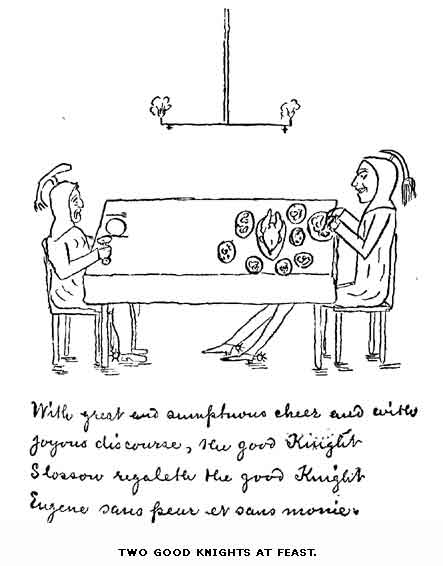 With great and sumptuous cheer and with
joyous discourse, the good Knight
Slosson regaleth the good Knight
Eugene sans peur et sans monie.
TWO GOOD KNIGHTS AT FEAST.